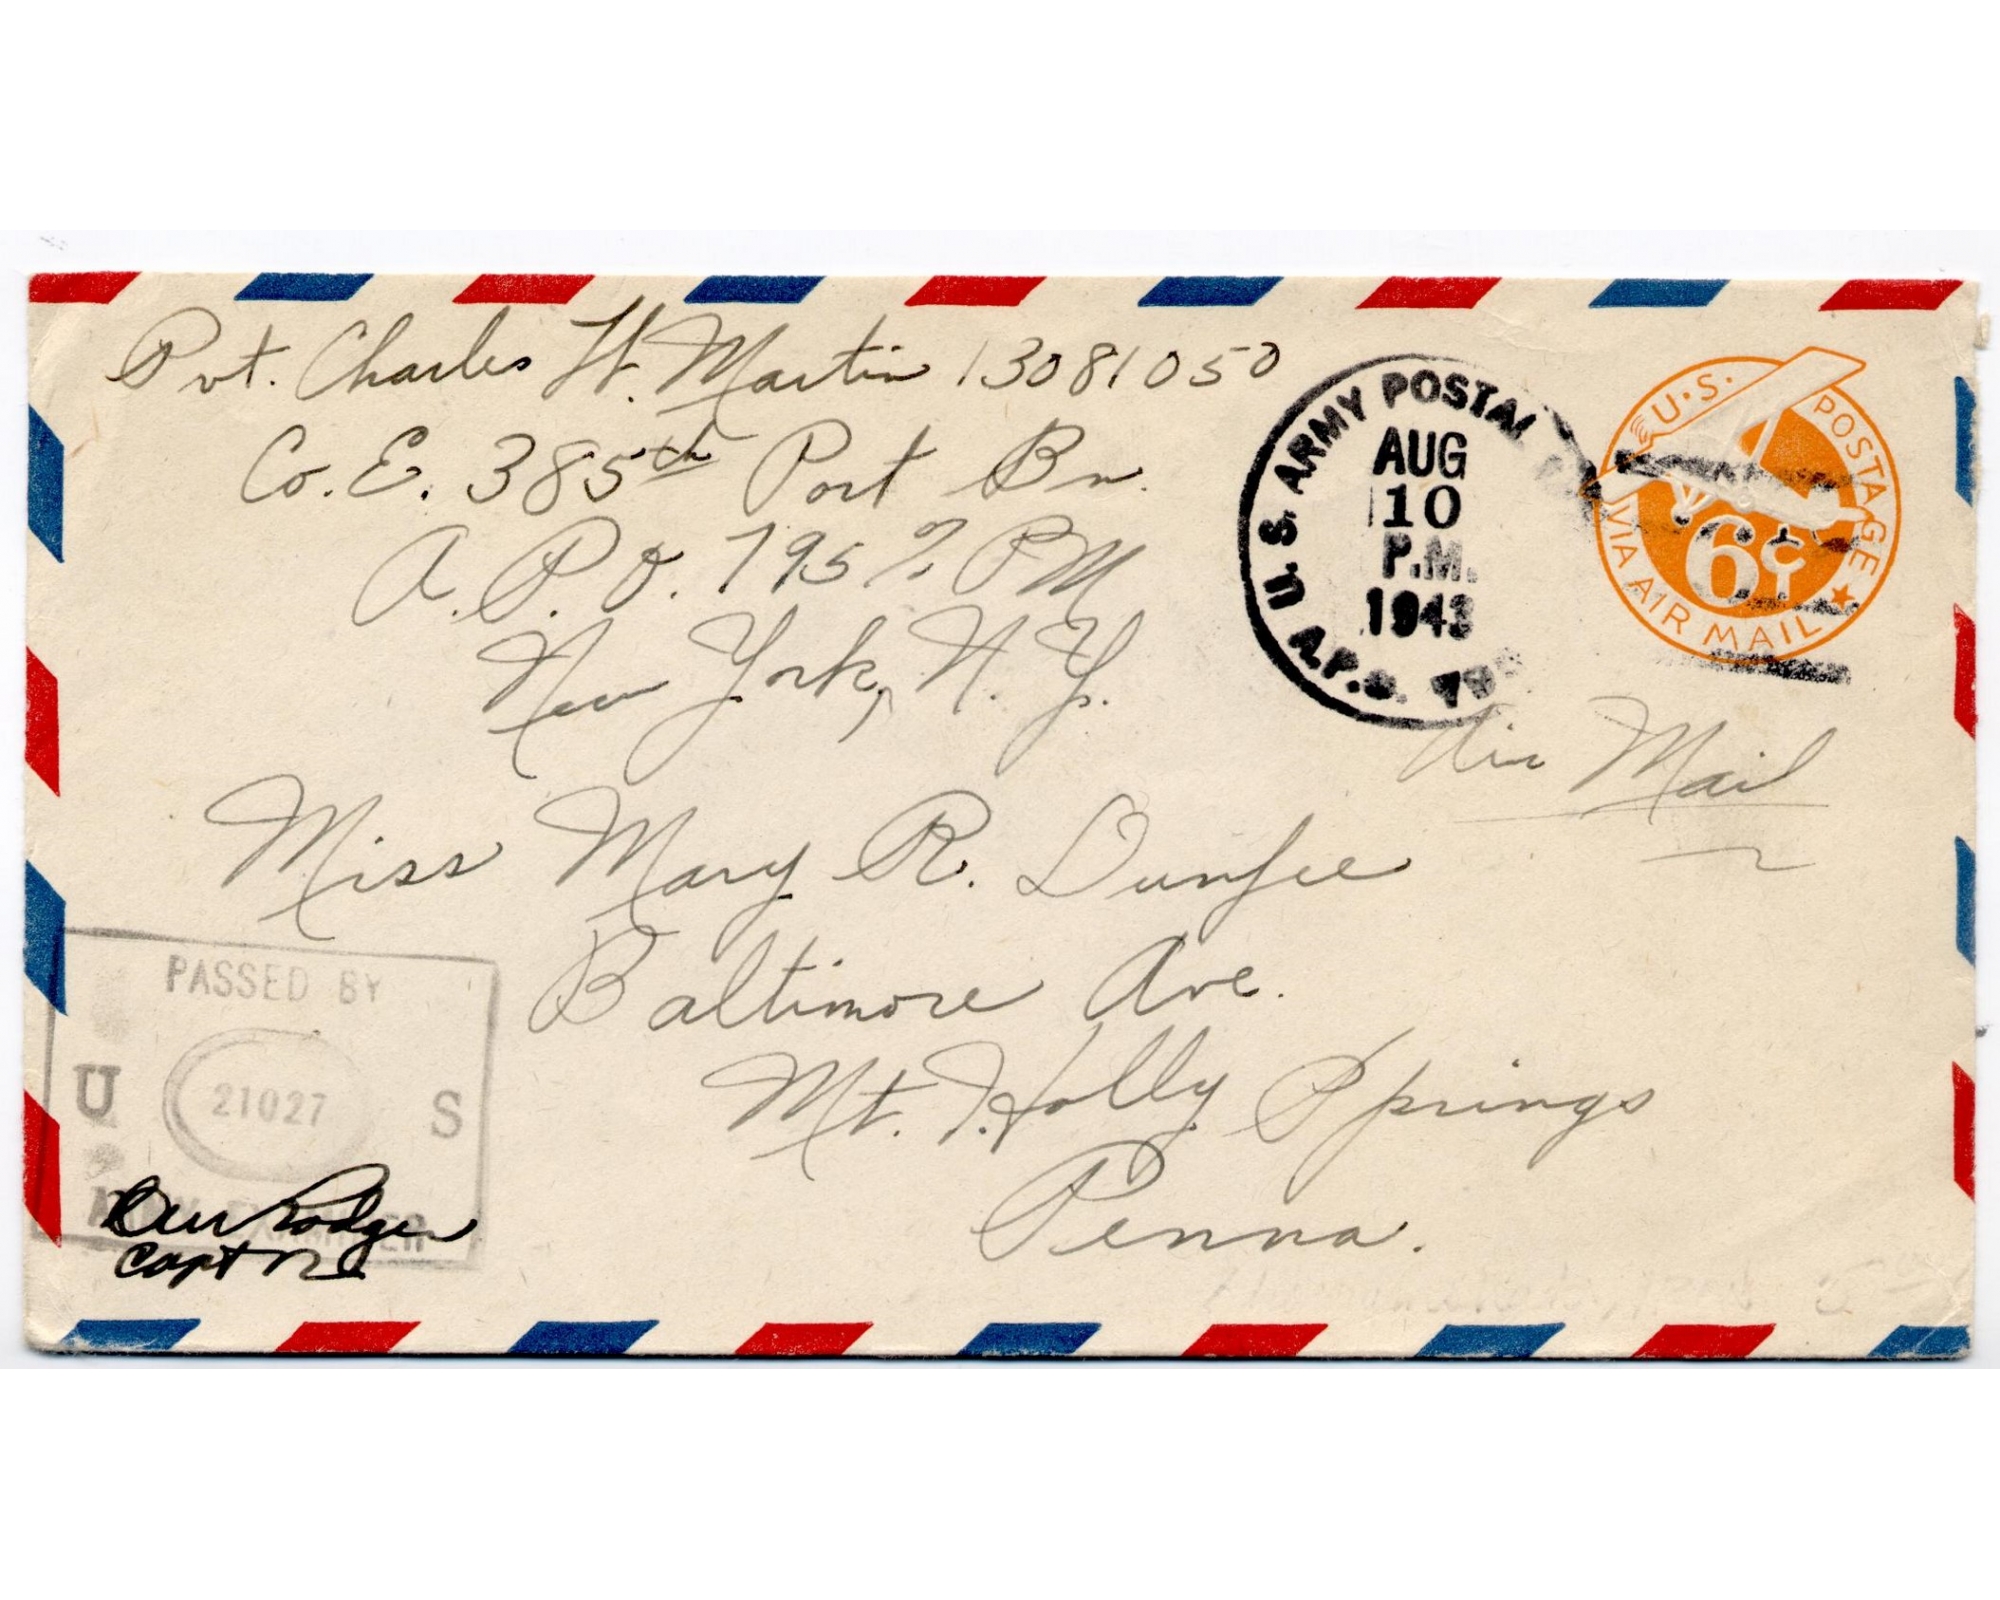 Pvt. Charles H. Martin 13081050
Co. E. 385th Port Bn.
A.P.O. 795 % PM
New York, N.Y.
U.S. ARMY POSTAL
AUG
10
P.M.
1943
A.P.O.
U.S. POSTAGE
6¢
VIA AIR MAIL
Air Mail
Miss Mary R. Dunfee
Baltimore Ave.
Mt. Holly Springs
Penna.
PASSED BY
U 21027 S
ARMY EXAMINER
Capt